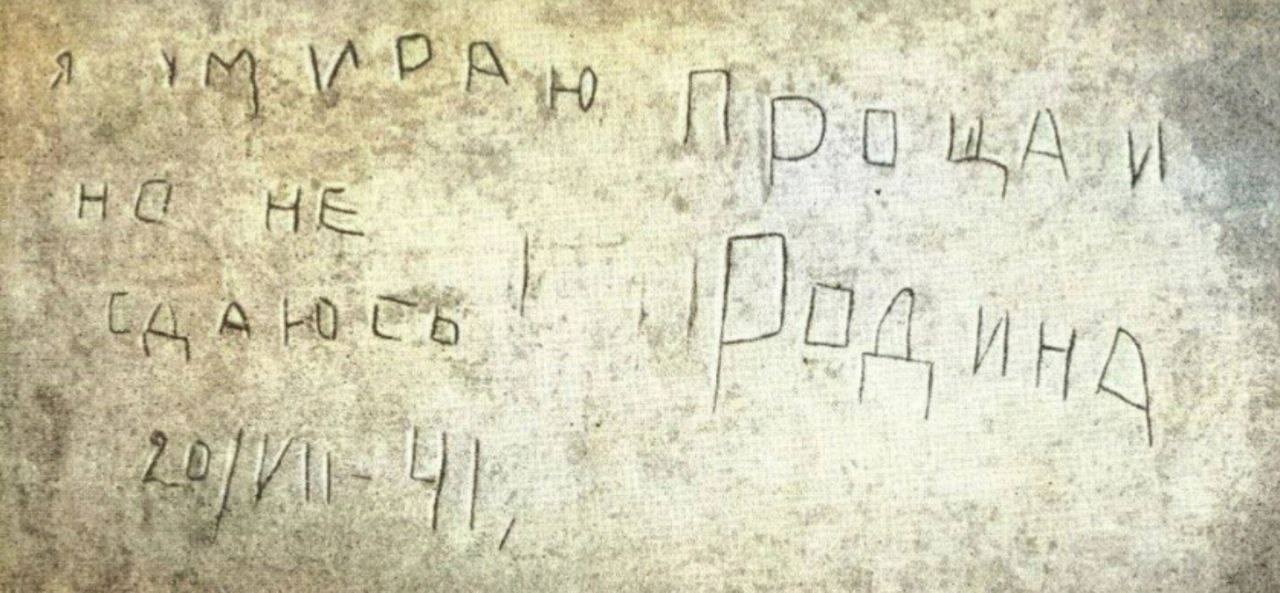 я умираю
но не
сдаюсь!
20/VII-41,
Прощаи
Родина